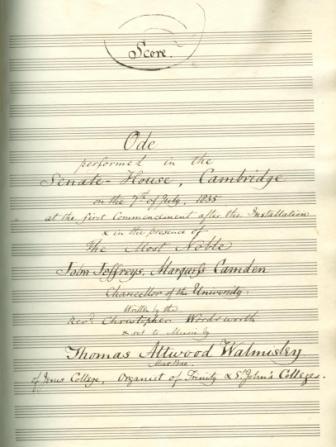 Score.
Ode
performed in the
Senate-House, Cambridge
on the 7th of July, 1835
at the first Commencement after the Installation
& in the presence of
The Most Noble
John Jeffreys, Marquiss Camden
Chancellor of the University.
Written by the
Revd. Christopher Wordsworth
& set to Music by
Thomas Attwood Walmisley
Mus: Bac.
of Jesus College, Organist of Trinity & St. John's Colleges.